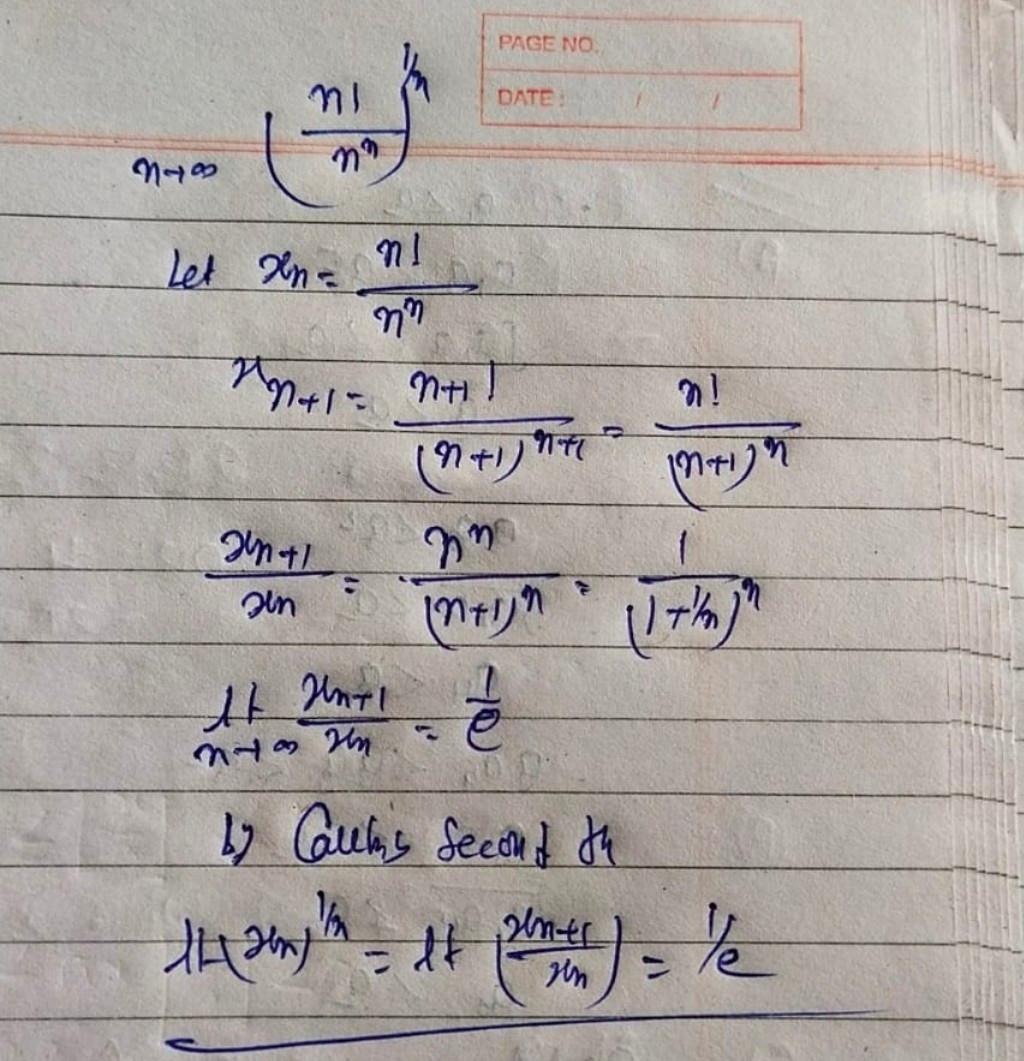 PAGE NO.
DATE: / /
n→∞ (n!/n^n)^1/n
Let xn = n!/n^n
x n+1 = n+1!/(n+1)^n+1 = n!/(n+1)^n
xn+1/xn = n^n/(n+1)^n = 1/(1+1/n)^n
lt n→∞ xn+1/xn = 1/e
by Cauchy's Second th
lt (xn)^1/n = lt (xn+1/xn) = 1/e